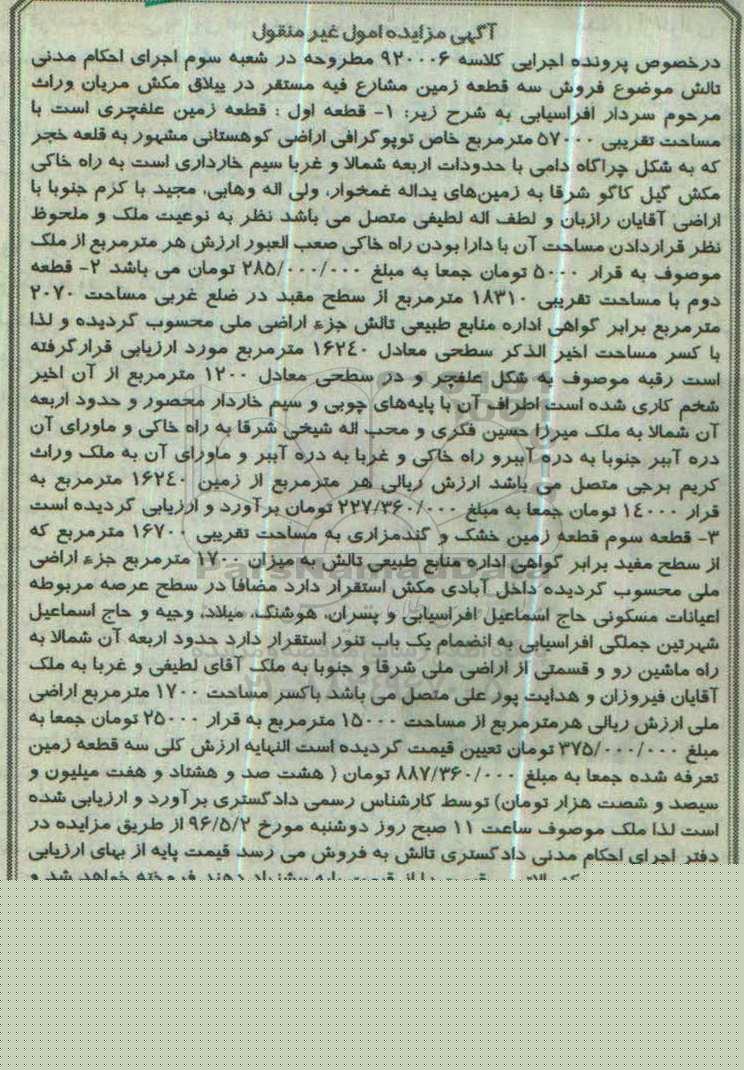 آگهی مزایده اموال غیر منقول
درخصوص پرونده اجرایی کلاسه ۹۲۰۰۰۶ مطروحه در شعبه سوم اجرای احکام مدنی
تالش موضوع فروش سه قطعه زمین مشارع فیه مستقر در ییلاق مکش مریان وراث
مرحوم سردار افراسیابی به شرح زیر: ۱- قطعه اول : قطعه زمین علفچری است با
مساحت تقریبی ۵۷۰۰۰ مترمربع خاص توپوگرافی اراضی کوهستانی مشهور به قلعه خجر
که به شکل چراگاه دامی با حدودات اربعه شمالا و غربا سیم خارداری است به راه خاکی
مکش گیل کاگو شرقا به زمین‌های یداله غمخوار، ولی اله وهابی، مجید با کزم جنوبا با
اراضی آقایان رازبان و لطف اله لطیفی متصل می باشد نظر به نوعیت ملک و ملحوظ
نظر قراردادن مساحت آن با دارا بودن راه خاکی صعب العبور ارزش هر مترمربع از ملک
موصوف به قرار ۵۰۰۰ تومان جمعا به مبلغ ۲۸۵/۰۰۰/۰۰۰ تومان می باشد ۲- قطعه
دوم با مساحت تقریبی ۱۸۳۱۰ مترمربع از سطح مقید در ضلع غربی مساحت ۲۰۷۰
مترمربع برابر گواهی اداره منابع طبیعی تالش جزء اراضی ملی محسوب گردیده و لذا
با کسر مساحت اخیر الذکر سطحی معادل ۱۶۲۴۰ مترمربع مورد ارزیابی قرارگرفته
است رقبه موصوف به شکل علفچر و در سطحی معادل ۱۲۰۰ مترمربع از آن اخیر
شخم کاری شده است اطراف آن با پایه‌های چوبی و سیم خاردار محصور و حدود اربعه
آن شمالا به ملک میرزا حسین فکری و محب اله شیخی شرقا به راه خاکی و ماورای آن
دره آببر جنوبا به دره آببرو راه خاکی و غربا به دره آببر و ماورای آن به ملک وراث
کریم برجی متصل می باشد ارزش ریالی هر مترمربع از زمین ۱۶۲۴۰ مترمربع به
قرار ۱۴۰۰۰ تومان جمعا به مبلغ ۲۲۷/۳۶۰/۰۰۰ تومان برآورد و ارزیابی گردیده است
۳- قطعه سوم قطعه زمین خشک و گندمزاری به مساحت تقریبی ۱۶۷۰۰ مترمربع که
از سطح مفید برابر گواهی اداره منابع طبیعی تالش به میزان ۱۷۰۰ مترمربع جزء اراضی
ملی محسوب گردیده داخل آبادی مکش استقرار دارد مضافا در سطح عرصه مربوطه
اعیانات مسکونی حاج اسماعیل افراسیابی و پسران، هوشنگ، میلاد، وجیه و حاج اسماعیل
شهرتین جملگی افراسیابی به انضمام یک باب تنور استقرار دارد حدود اربعه آن شمالا به
راه ماشین رو و قسمتی از اراضی ملی شرقا و جنوبا به ملک آقای لطیفی و غربا به ملک
آقایان فیروزان و هدایت پور علی متصل می باشد باکسر مساحت ۱۷۰۰ مترمربع اراضی
ملی ارزش ریالی هرمترمربع از مساحت ۱۵۰۰۰ مترمربع به قرار ۲۵۰۰۰ تومان جمعا به
مبلغ ۳۷۵/۰۰۰/۰۰۰ تومان تعیین قیمت گردیده است النهایه ارزش کلی سه قطعه زمین
تعرفه شده جمعا به مبلغ ۸۸۷/۳۶۰/۰۰۰ تومان ( هشت صد و هشتاد و هفت میلیون و
سیصد و شصت هزار تومان) توسط کارشناس رسمی دادگستری برآورد و ارزیابی شده
است لذا ملک موصوف ساعت ۱۱ صبح روز دوشنبه مورخ ۹۶/۵/۲ از طریق مزایده در
دفتر اجرای احکام مدنی دادگستری تالش به فروش می رسد قیمت پایه از بهای ارزیابی